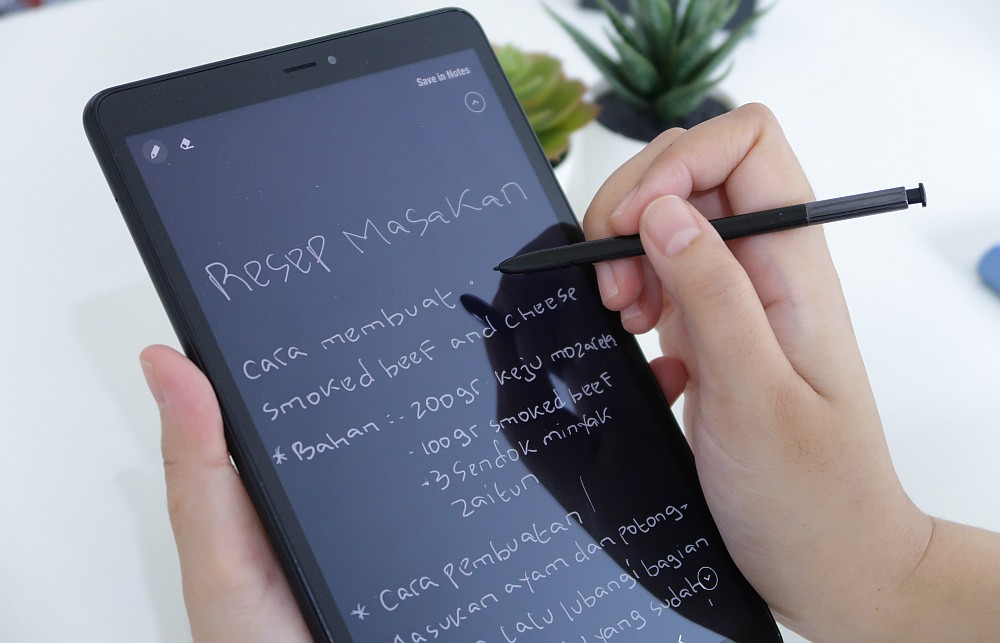 Save in Notes
Resep Masakan
Cara membuat :
smoked beef and cheese
* Bahan :- 200gr keju mozarela
- 100gr smoked beef
- 3 Sendok minyak
Zaitun
* Cara pembuatan
Masukan ayam dan potong-
Lalu lubangi bagian
yang sudah